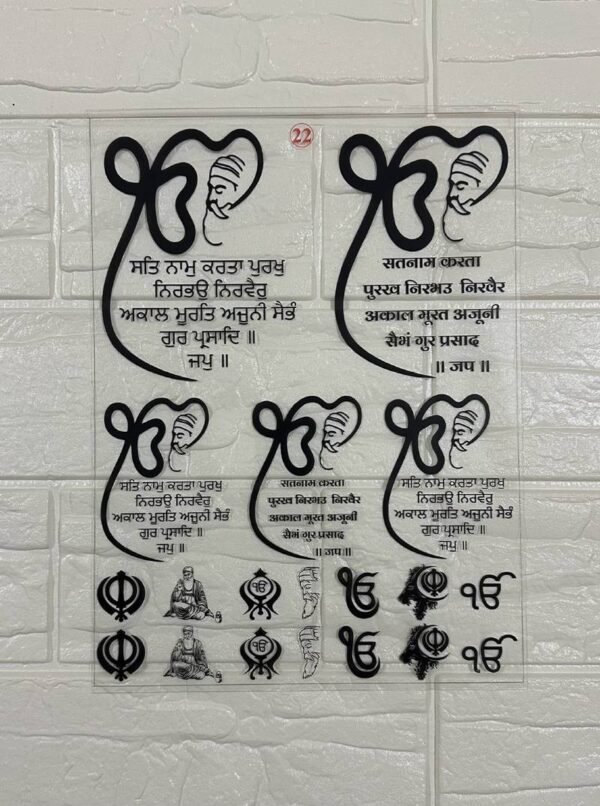 22
ੴ
ਸਤਿ ਨਾਮੁ ਕਰਤਾ ਪੁਰਖੁ
ਨਿਰਭਉ ਨਿਰਵੈਰੁ
ਅਕਾਲ ਮੂਰਤਿ ਅਜੂਨੀ ਸੈਭੰ
ਗੁਰ ਪ੍ਰਸਾਦਿ ॥
ਜਪੁ ॥
ੴ
सतनाम करता
पुरख निरभउ निरवैर
अकाल मूरत अजूनी
सैभं गुर प्रसाद
॥ जप ॥
ੴ
ਸਤਿ ਨਾਮੁ ਕਰਤਾ ਪੁਰਖੁ
ਨਿਰਭਉ ਨਿਰਵੈਰੁ
ਅਕਾਲ ਮੂਰਤਿ ਅਜੂਨੀ ਸੈਭੰ
ਗੁਰ ਪ੍ਰਸਾਦਿ ॥
ਜਪੁ ॥
ੴ
सतनाम करता
पुरख निरभउ निरवैर
अकाल मूरत अजूनी
सैभं गुर प्रसाद
॥ जप ॥
ੴ
ਸਤਿ ਨਾਮੁ ਕਰਤਾ ਪੁਰਖੁ
ਨਿਰਭਉ ਨਿਰਵੈਰੁ
ਅਕਾਲ ਮੂਰਤਿ ਅਜੂਨੀ ਸੈਭੰ
ਗੁਰ ਪ੍ਰਸਾਦਿ ॥
ਜਪੁ ॥
ੴ ੴ ੴ
ੴ ੴ ੴ